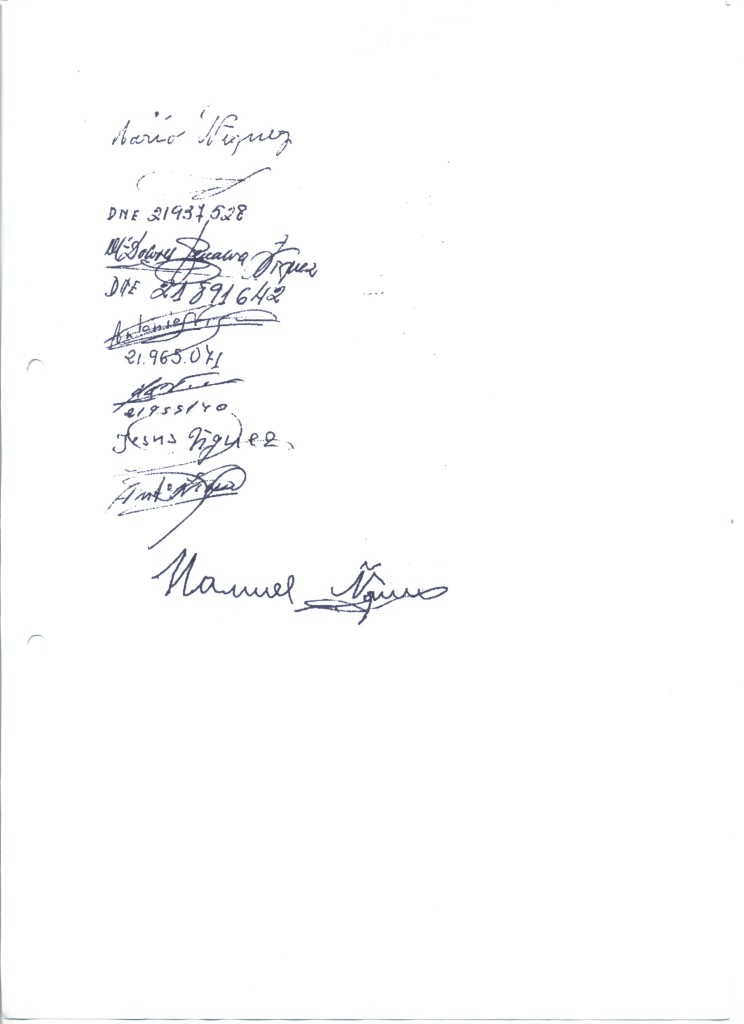 Ñiguez
DNI 21937528
Mª Dolores Penalva Ñiguez
DNI 21891642
Antonio
21.965.071
21955140
Jesus Ñiguez
Antº Ñiguez
Manuel Ñiguez